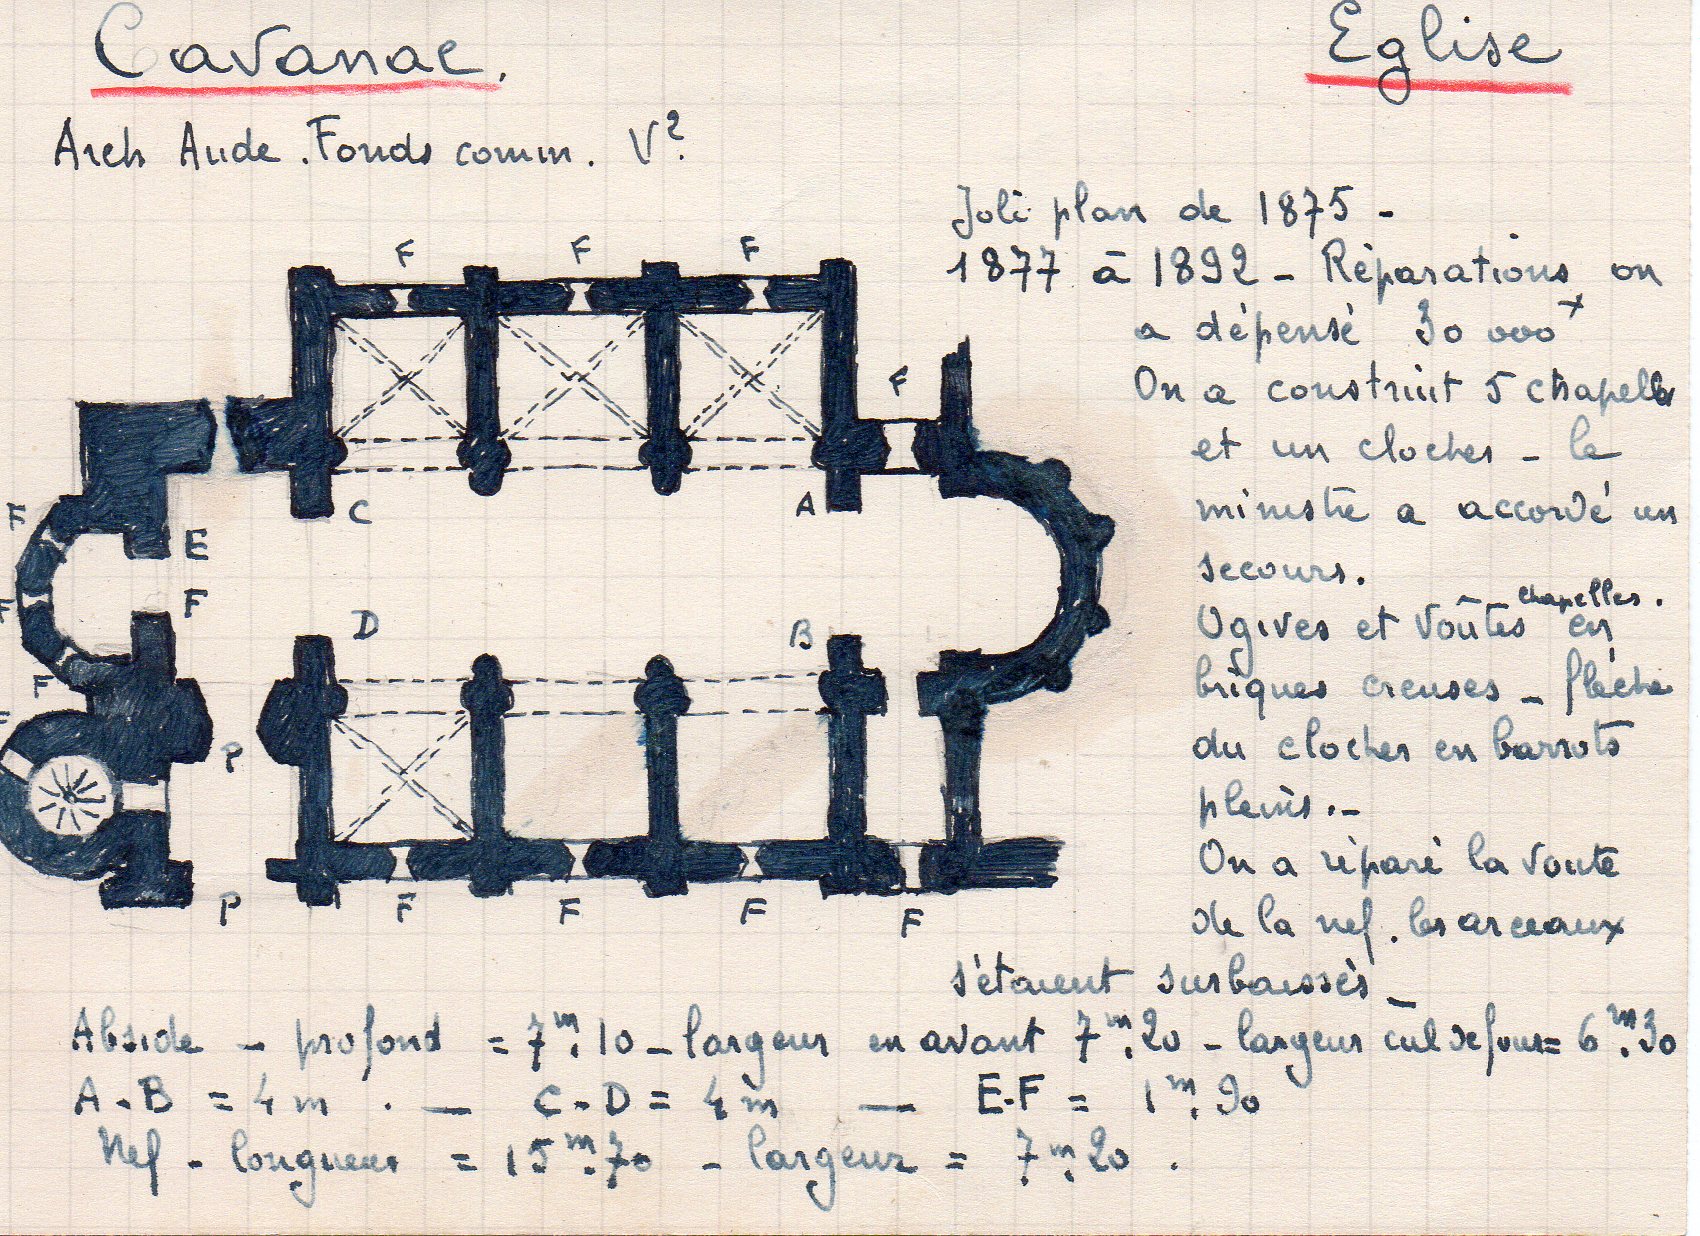 Cavanac. Eglise
Arch Aude. Fonds comm. V².
Joli plan de 1875 -
1877 à 1892 - Réparations on
a dépensé 30 000 x
On a construit 5 chapelles
et un clocher - le
ministre a accordé un
secours.
Ogives et voûtes chapelles. en
briques creuses - flèche
du clocher en barrots
pleins. -
On a réparé la voute
de la nef. les arceaux
s'étaient surbaissés -
F F F
F
C A
F E
F F
D B
F
F P
P F F F F
Abside - profond = 7m.10 - largeur en avant 7m.20 - largeur cul de four = 6m.30
A-B = 4m. — C-D = 4m — E-F = 1m.90
Nef - longueur = 15m.70 - largeur = 7m.20.